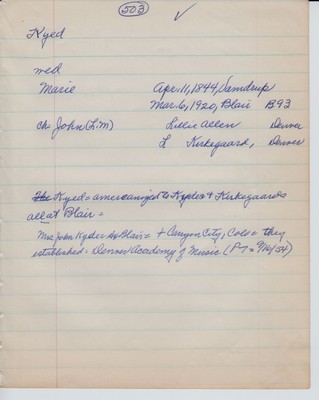 503 ✓
Kyed
med
Marie Apr. 11, 1844, Samdrup
Mar. 6, 1920, Blair B93
ch John (L.M) Lillie Allen Denver
L Kirkegaard, Denver
The Kyeds americanized to Kyder & Kirkegaards
all at Blair =
Mrs John Kyder Blair = + Canyon City, Colo = they
established = Denver Academy of Music (P7 = 9/16/54)